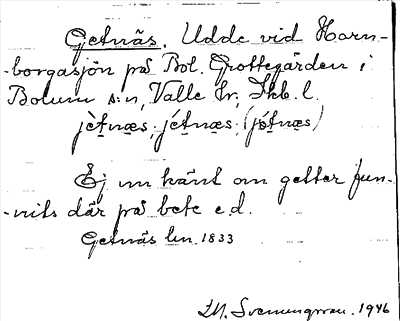 Getnäs. Udde vid Horn-
-borgasjön på Bol. Grottegården i
Bolum s:n, Valle hr, Skb. l.
jètnæs, jétnæs, (jétnæs)
Ej nu känt om getter fun-
-nits där på bete e.d.
Getnäs lm. 1833
1946